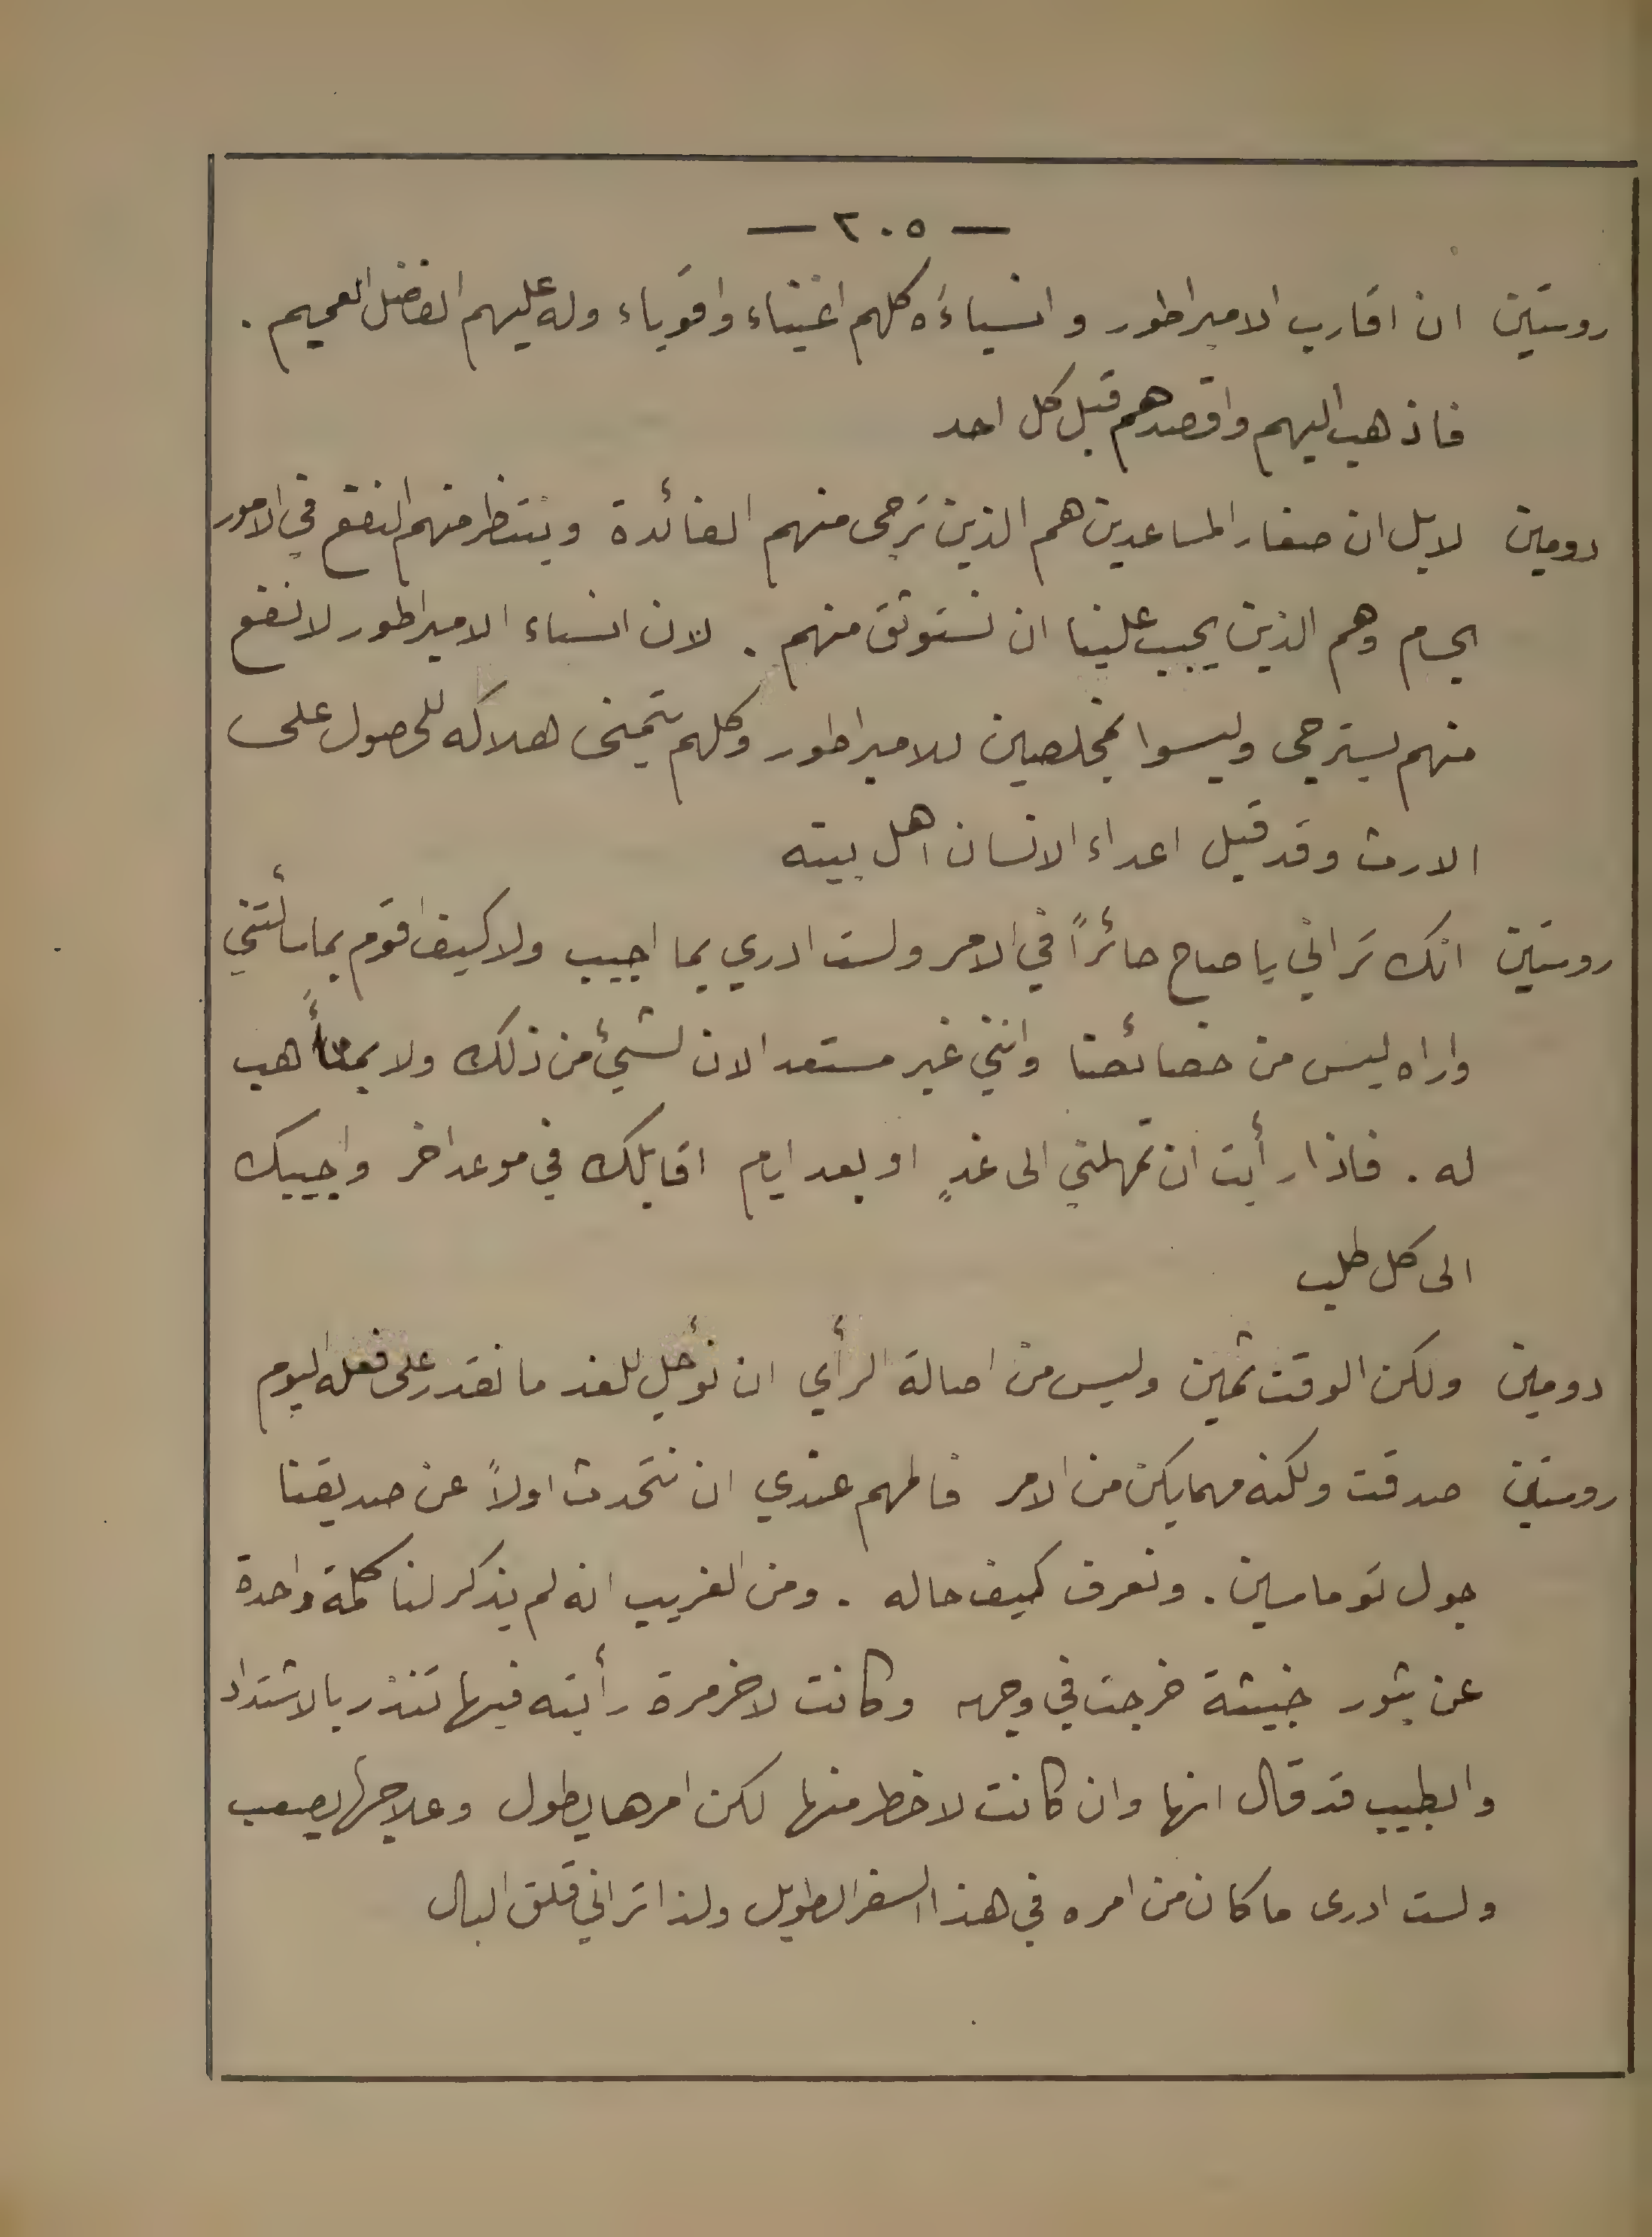 — ٢٠٥ —
روستين ان اقارب الامبراطور وانسباءَه كلهم اغنياء واقوياء وله عليهم الفضل العميم .
فاذهب اليهم واقصدهم قبل كل احد
دومين لا بل ان صغار المساعدين هم الذين ترجى منهم الفائدة وينتظر منهم النفع في الامور
الجسام وهم الذين يجب علينا ان نستوثق منهم . لان انسباء الامبراطور لا نفع
منهم يسترجى وليسوا بمخلصين للامبراطور وكلهم يتمنى هلاكه للحصول على
الارث وقد قيل اعداء الانسان اهل بيته
روستين انك تراني يا صاح حائراً في الامر ولست ادري بما اجيب ولا كيف اقوم بما سألتني
واراه ليس من خصائصنا وانني غير مستعد الان لشيءٍ من ذلك ولا متأهب
له . فاذا رأيت ان تمهلني الى غدٍ او بعد ايام اقابلك في موعد اخر واجيبك
الى كل طلب
دومين ولكن الوقت ثمين وليس من اصالة الرأي ان نؤجل للغد ما نقدر على فعله اليوم
روستين صدقت ولكنه مهما يكن من الامر فالمهم عندي ان نتحدث اولاً عن صديقنا
جول توماسين . ونعرف كيف حاله . ومن الغريب انه لم يذكر لنا كلمة واحدة
عن بثور خبيثة خرجت في وجهه وكانت لاخر مرة رأيته فيها تنذر بالاشتداد
والطبيب قد قال انها وان كانت لا خطر منها لكن امرها يطول وعلاجها يصعب
ولست ادرى ما كان من امره في هذا السفر الطويل ولذا تراني قلق البال